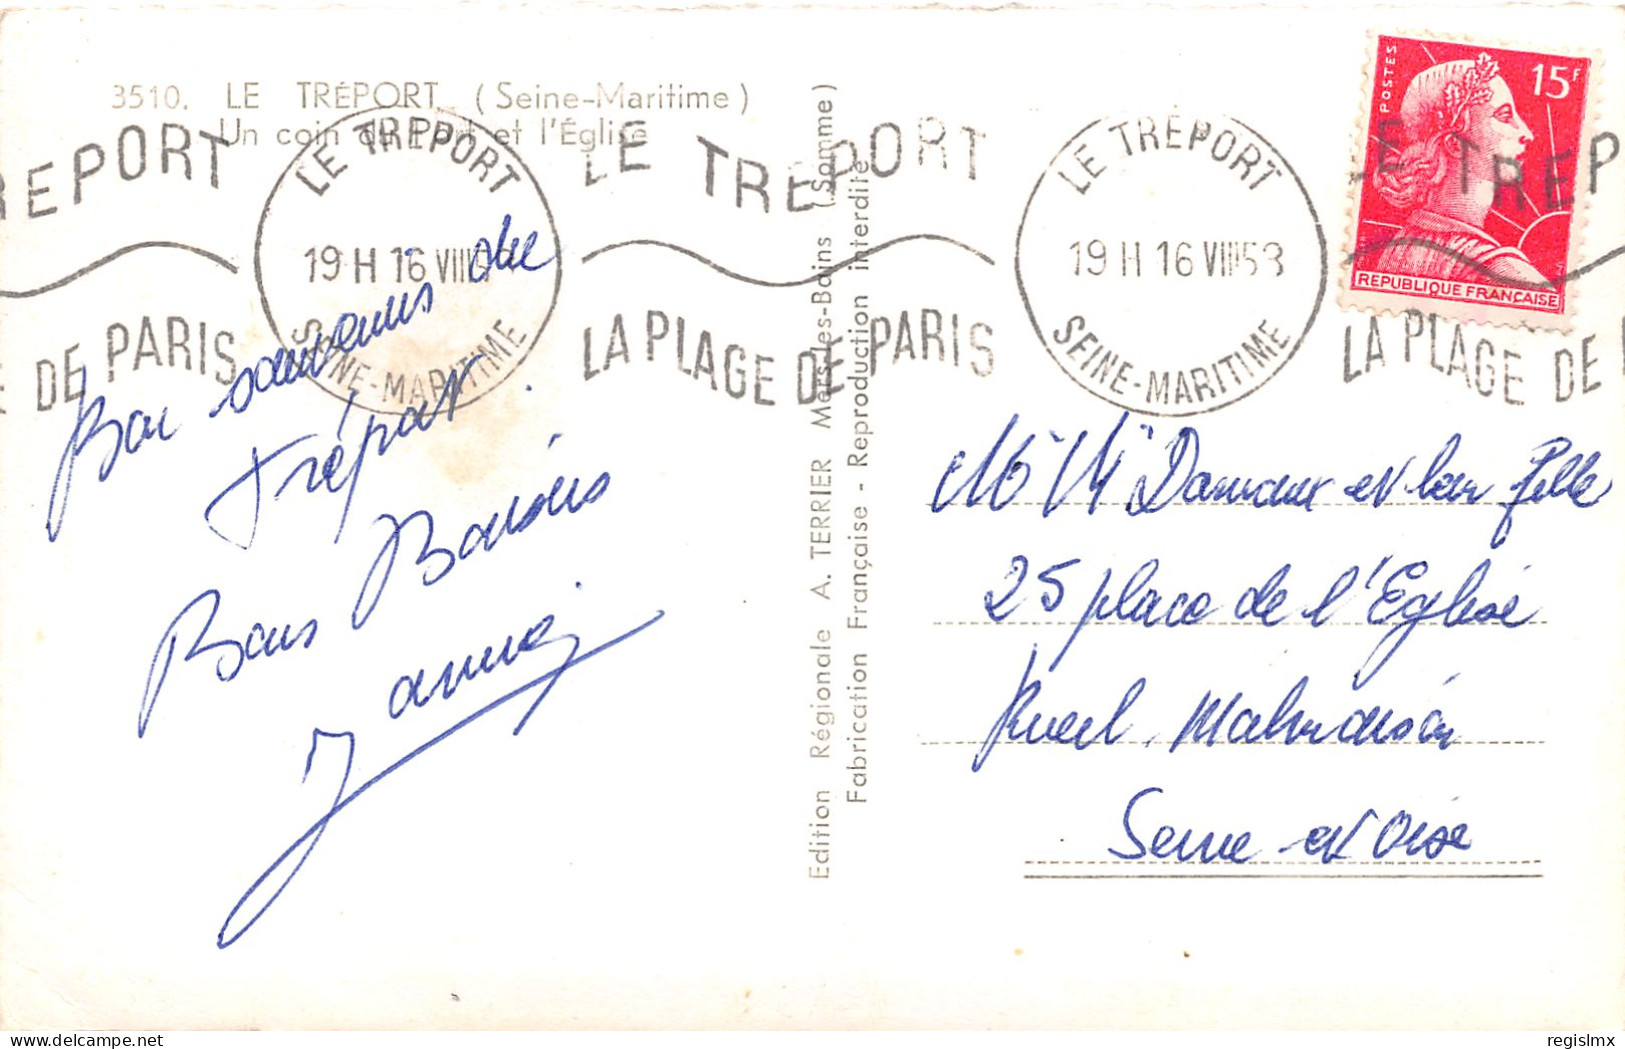 3510. LE TRÉPORT (Seine-Maritime)
Un coin du Port et l'Église
TREPORT
DE PARIS
LE TREPORT
19 H 16 VIII
SEINE-MARITIME
LE TREPORT
LA PLAGE DE PARIS
LE TREPORT
19 H 16 VIII 58
SEINE-MARITIME
LE TREP
LA PLAGE DE
POSTES
15F
REPUBLIQUE FRANÇAISE
Bon souvenirs du
tréport
Bons Baisers
Jannie
Edition Régionale A. TERRIER Mers-les-Bains (Somme)
Fabrication Française - Reproduction interdite
Mr Mme Damaux et leur fille
25 place de l'Eglise
Rueil Malmaison
Seine et Oise
regislmx